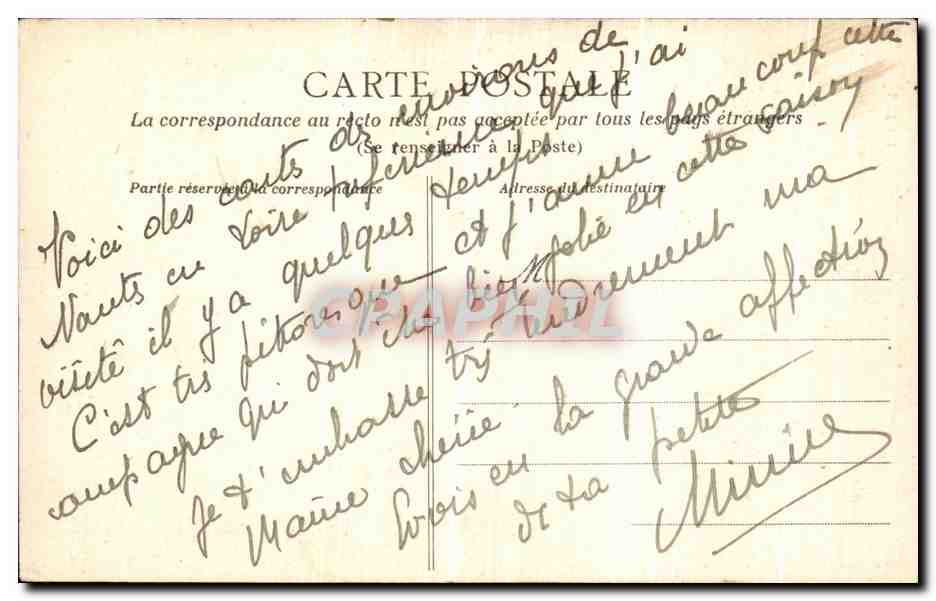 CARTE POSTALE
La correspondance au recto n'est pas acceptée par tous les pays étrangers
(Se renseigner à la Poste)
Partie réservée à la correspondance
Adresse du destinataire
Voici des coûts des environs de
Nantes en Loire Inférieure que j'ai
visité il y a quelques temps
C'est très pittoresque et j'aime beaucoup cette
campagne qui doit être bien jolie en cette saison
Je t'embrasse très tendrement ma
Maïne chérie
Crois en la grande affection
de ta petite
Mimine
CPAPHIL